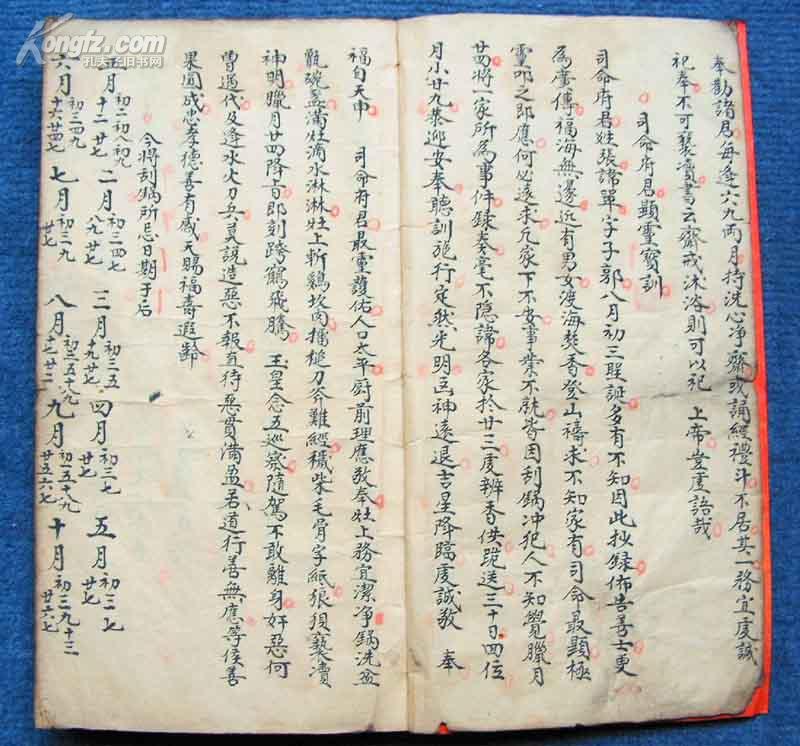 奉勸諸君每逢六九兩月持洗心净齋或誦經禮斗不居其一務宜虔誠
祀奉不可褻瀆書云齋戒沐浴則可以祀 上帝豈虛語哉
司命府君顯靈寶訓
司命府君姓張諱單字子郭八月初三聖誕多有不知因此抄録佈告善士更
為廣傳福海無邊近有男女渡海焚香登山禱求不知家有司命最顯極
靈叩之即應何必遠求凡家下不安事業不就皆因刮鍋冲犯人不知覺臘月
廿四將一家所為事件録奏毫不隱諱各家於廿三虔辦香供跪送三十日四位
月小廿九恭迎安奉聽訓施行定然光明凶神遠退吉星降臨虔誠敬 奉
福自天申 司命府君最靈護佑人口太平厨前理應敬奉灶上務宜潔净鍋洗盆
甑碗盖滿灶滴水淋淋灶上斬鷄坎肉擂槌刀斧難經穢柴毛骨字紙狼狽褻瀆
神明臘月廿四降旨即刻跨鶴飛騰 玉皇念五巡察隨駕不敢離身奸惡何
曾過代及逢水火刀兵莫說造惡不報直待惡貫滿盈若道行善無應等侯善
果圓成忠孝德善有感天賜福壽遐齡
今將刮鍋所忌日期于后
正月 初二初八初九 十二 廿七 二月 初二四七 八九 廿七 三月 初三五 十九 廿七 四月 初三七 廿七 五月 初三七 廿七
六月 初三四九 十六 廿四七 七月 初三九 廿七 八月 初三五十八九 十七 廿二 九月 初一五十八九 廿五六七 十月 初三九十三 廿六七
Kongfz.com
孔夫子旧书网